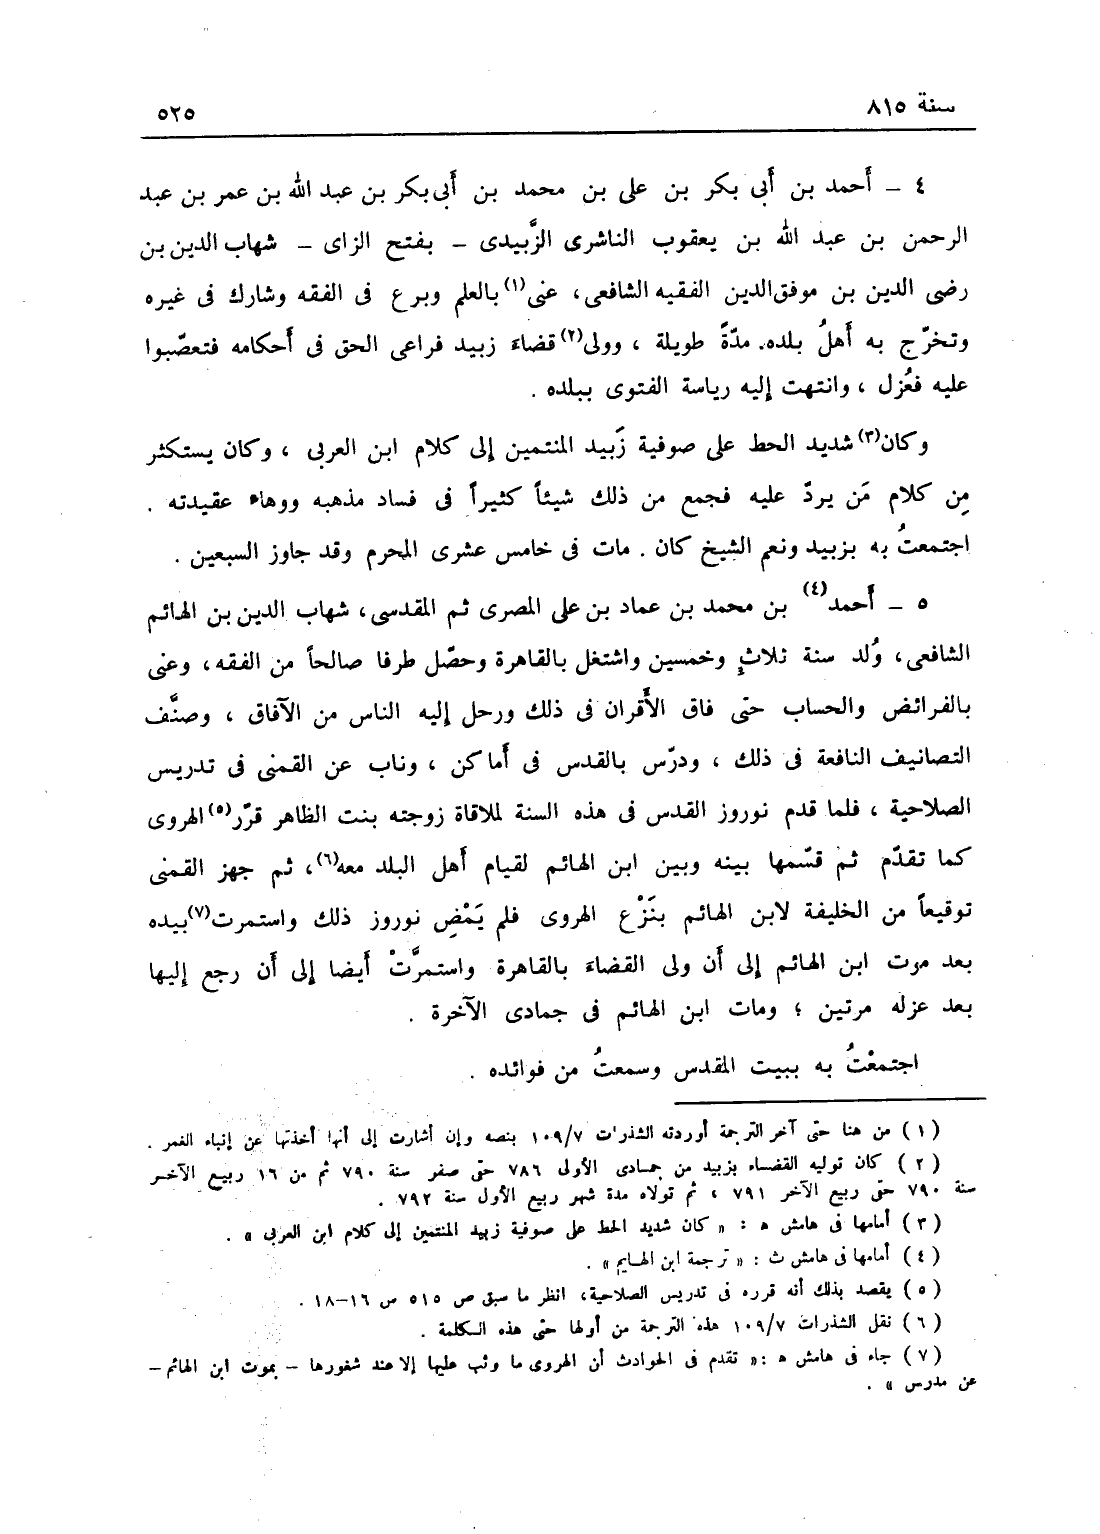 سنة ٨١٥
٥٢٥
٤ – أَحمد بن أَبى بكر بن على بن محمد بن أَبى بكر بن عبد الله بن عمر بن عبد
الرحمن بن عبد الله بن يعقوب الناشرى الزَّبيدى – بفتح الزاى – شهاب الدين بن
رضى الدين بن موفق الدين الفقيه الشافعى، عنى(١) بالعلم وبرع فى الفقه وشارك فى غيره
وتخرّج به أَهلُ بلده. مدّةً طويلة ، وولى(٢) قضاءَ زبيد فراعى الحق فى أَحكامه فتعصّبوا
عليه فعُزل ، وانتهت إليه رياسة الفتوى ببلده .
وكان(٣) شديد الحط على صوفية زَبيد المنتمين إلى كلام ابن العربى ، وكان يستكثر
مِن كلام مَن يردّ عليه فجمع من ذلك شيئاً كثيراً فى فساد مذهبه ووهاء عقيدته .
اجتمعتُ به بزبيد ونعم الشيخ كان . مات فى خامس عشرى المحرم وقد جاوز السبعين .
٥ – أَحمد(٤) بن محمد بن عماد بن على المصرى ثم المقدسى، شهاب الدين بن الهائم
الشافعى، وُلد سنة ثلاثٍ وخمسين واشتغل بالقاهرة وحصّل طرفا صالحاً من الفقه، وعنى
بالفرائض والحساب حتى فاق الأَقران فى ذلك ورحل إليه الناس من الآفاق ، وصنَّف
التصانيف النافعة فى ذلك ، ودرّس بالقدس فى أَماكن ، وناب عن القمنى فى تدريس
الصلاحية ، فلما قدم نوروز القدس فى هذه السنة لملاقاة زوجته بنت الظاهر قرّر(٥) الهروى
كما تقدّم ثم قسّمها بينه وبين ابن الهائم لقيام أَهل البلد معه(٦)، ثم جهز القمنى
توقيعاً من الخليفة لابن الهائم بنَزْع الهروى فلم يَمْضِ نوروز ذلك واستمرت(٧) بيده
بعد موت ابن الهائم إلى أَن ولى القضاءَ بالقاهرة واستمرَّتْ أَيضا إلى أَن رجع إليها
بعد عزله مرتين ؛ ومات ابن الهائم فى جمادى الآخرة .
اجتمعْتُ به ببيت المقدس وسمعتُ من فوائده .
(١) من هنا حتى آخر الترجمة أوردته الشذرات ١٠٩/٧ بنصه وإن أشارت إلى أنها أخذتها عن إنباء الغمر .
(٢) كان توليه القضاء بزبيد من جمادى الأولى ٧٨٦ حتى صفر سنة ٧٩٠ ثم من ١٦ ربيع الآخر
سنة ٧٩٠ حتى ربيع الآخر ٧٩١ ، ثم تولاه مدة شهر ربيع الأول سنة ٧٩٢ .
(٣) أمامها فى هامش ه : « كان شديد الحط على صوفية زبيد المنتمين إلى كلام ابن العربى » .
(٤) أمامها فى هامش ث : « ترجمة ابن الهايم » .
(٥) يقصد بذلك أنه قرره فى تدريس الصلاحية، انظر ما سبق ص ٥١٥ س ١٦–١٨ .
(٦) نقل الشذرات ١٠٩/٧ هذه الترجمة من أولها حتى هذه الكلمة .
(٧) جاء فى هامش ه : « تقدم فى الحوادث أن الهروى ما وثب عليها إلا عند شغورها – بموت ابن الهائم –
عن مدرس » .